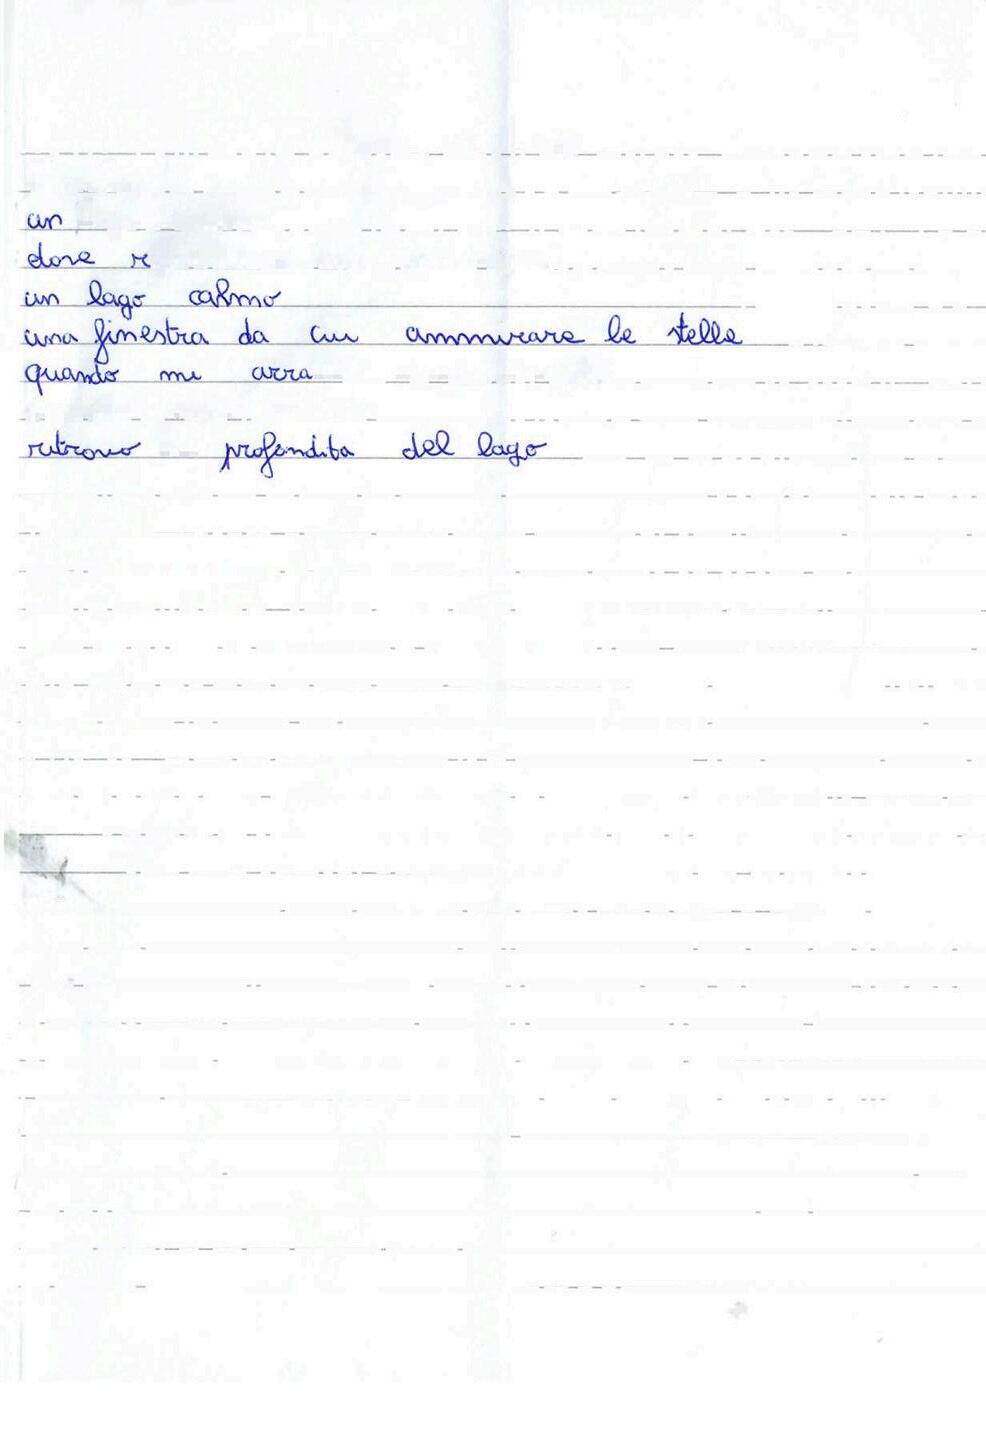 un
dove r
un lago calmo
una finestra da cui ammirare le stelle
quando mi
profondita del lago